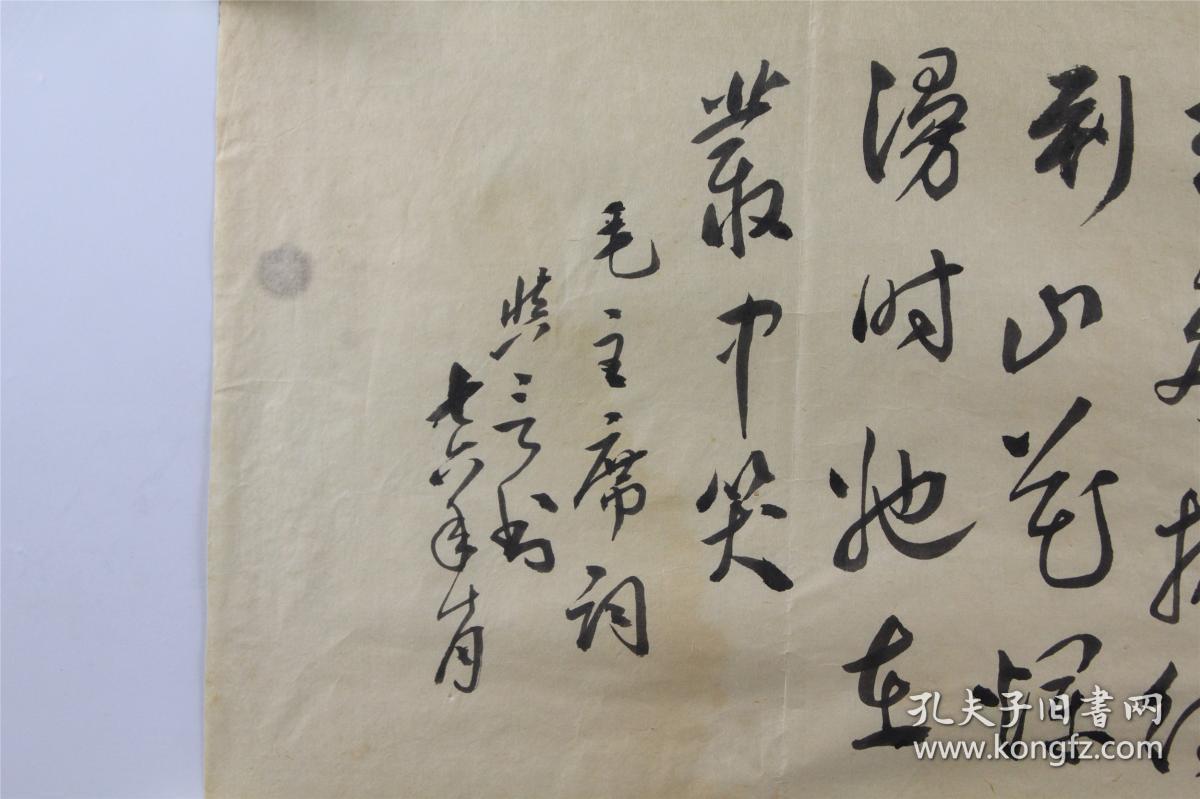 到山花爛
漫时她在
叢中笑
毛主席词
书
七六年十月
孔夫子旧书网
www.kongfz.com